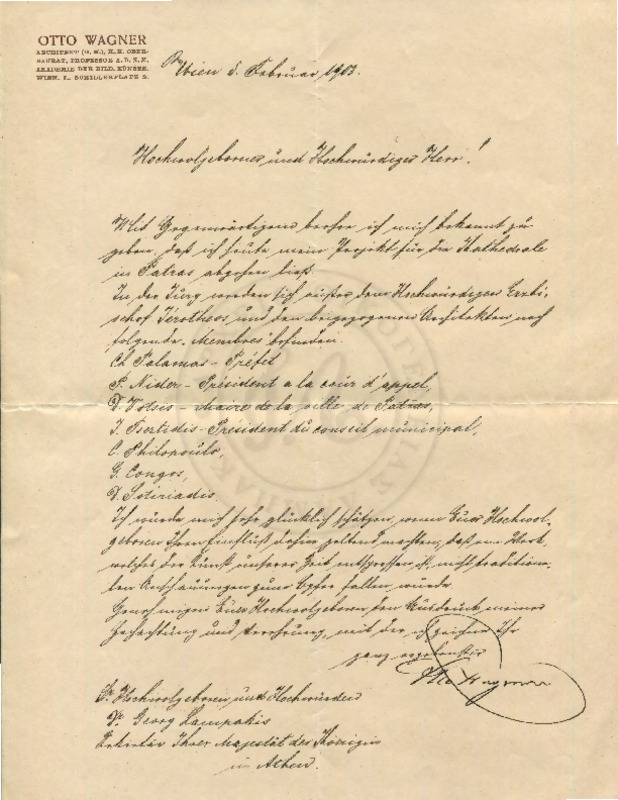 OTTO WAGNER
ARCHITEKT (O. M.), K.K. OBER-
BAURAT, PROFESSOR A. D. K. K.
AKADEMIE DER BILD. KÜNSTE.
WIEN, I. SCHILLERPLATZ 3.
Wien 5. Februar 1903.
Hochwolgeborner und Hochwürdiger Herr!
Mit Gegenwärtigem beehre ich mich bekannt zu
geben, daß ich heute mein Projekt für die Kathedrale
in Patras abgehen ließ.
In der Jury werden sich außer dem Hochwürdigen Erzbi-
schof Jérotheos und den beigezogenen Architekten noch
folgende „Membres" befinden:
Ch Palamas – Préfet
P. Nider – Président a la cour d'appel,
D. Votsis – Maire de la ville de Patras,
J. Psertidis – Président du conseil municipal,
C. Philopoulo,
G. Congos,
D. Sotiriadis.
Ich würde mich sehr glücklich schätzen, wenn Euer Hochwol-
geboren Ihren Einfluß dahin geltend machten, daß ein Werk
welches der Kunst unserer Zeit entsprossen ist, nicht tradition-
ellen Anschauungen zum Opfer fallen würde.
Genehmigen Euer Hochwolgeboren den Ausdruck meiner
Hochachtung und Verehrung, mit der ich zeichne Ihr
ganz ergebenster
Otto Wagner
Sr Hochwolgeboren und Hochwürden
Dr. Georg Lampakis
Sekretär Ihrer Majestät der Königin
in Athen.